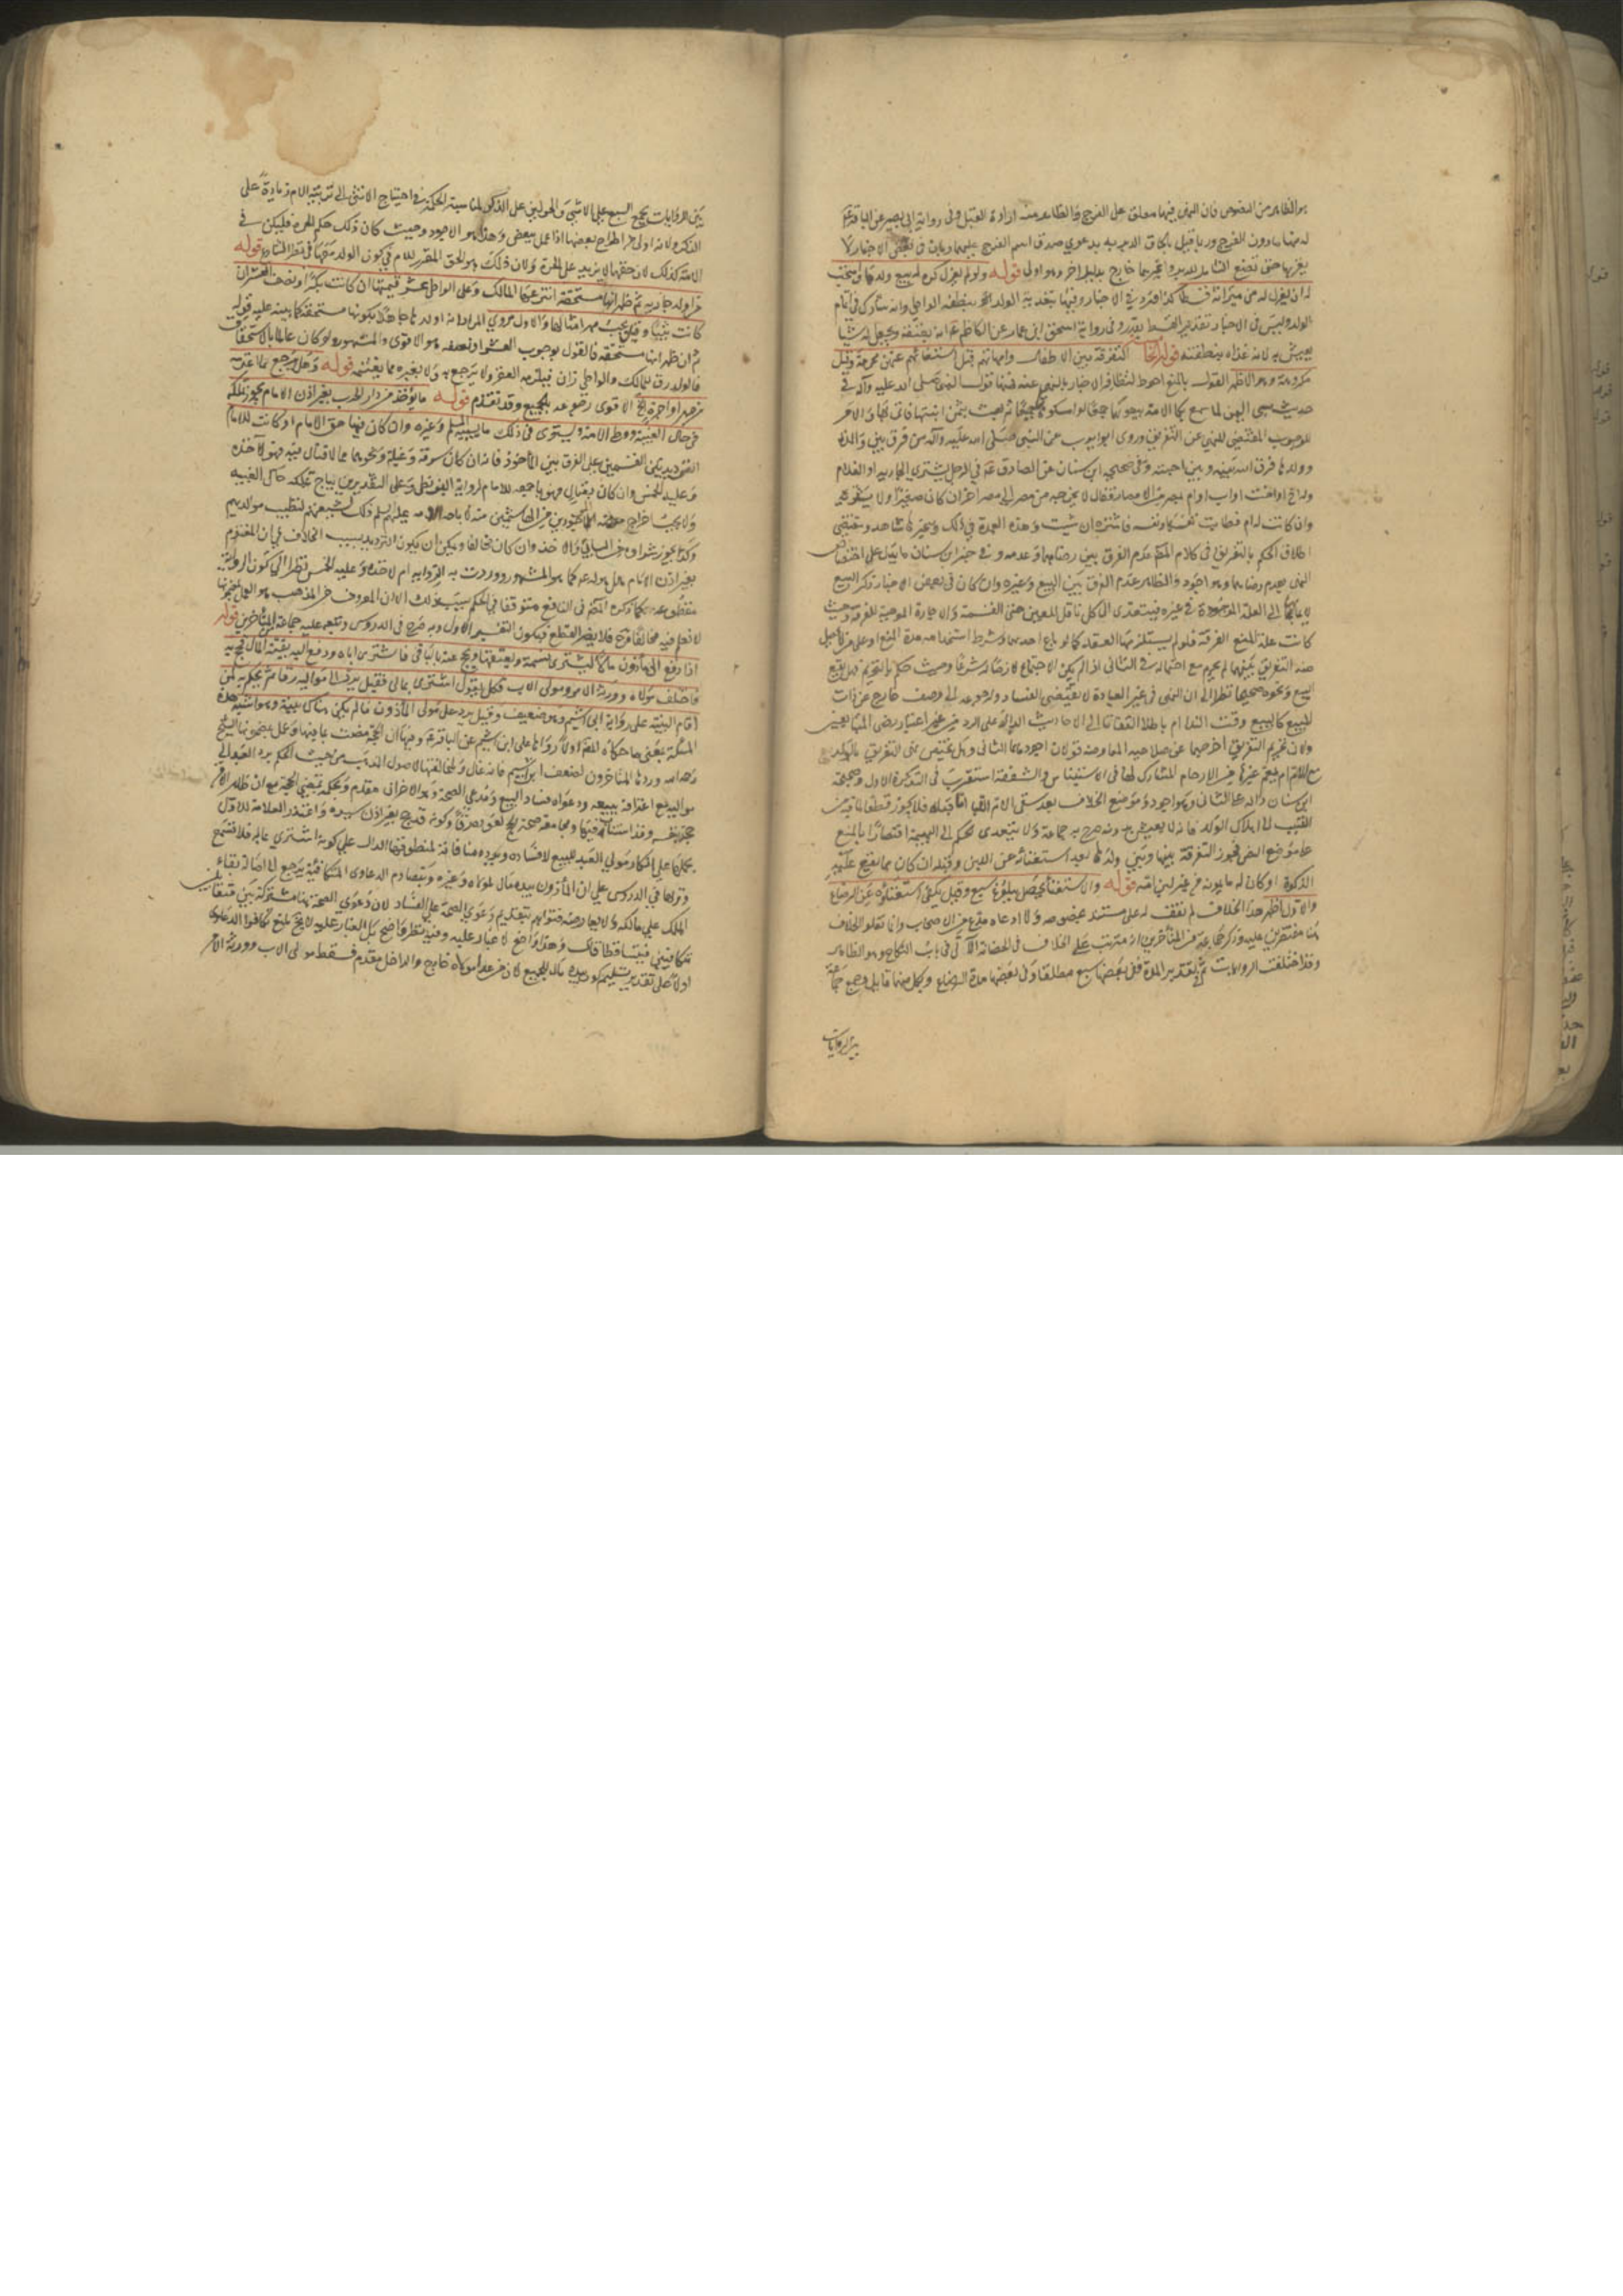 هو الظاهر من النصوص فان النهى فيها معلق على الفرج والظاهر منه ارادة القبل وفى رواية ابى بصير عن الباقر ع
له منها ما دون الفرج وربما قيل بالحاق الدبر به بدعوى صدق اسم الفرج عليهما وبان فى بعض الاخبار لا
يقربها حتى تضع الشامل للدبر وغيرهما خارج بدليل اخر وهو اولى قوله ولو لم يعزل كره له بيع ولدها ويستحب
له ان يعزل له من ميراثه قسطا كذا فى الاخبار وفيها بتغذية الولد بنطفه الواطى وانه شارك فى اتمام
الولد وليس فى الاخبار تقدير القسط بقدر وفى رواية اسحق بن عمار عن الكاظم ع انه يعتقه ويجعل له شيئا
يعيش به لانه غذاه بنطفته قوله التفرقة بين الاطفال وامهاتهم قبل استغنائهم عنهن محرمة وقيل
مكروهة وهو الاظهر القول بالمنع احوط لتظافر الاخبار بالنهى عنه فمنها قول النبى صلى الله عليه وآله فى
حديث سبى اليمن لما سمع بكا الامة بيعوهما جميعا او امسكوهما جميعا لما بعث بثمن ابنتها فاتى بها والامر
للوجوب المقتضى للنهى عن التفريق وروى ابو ايوب عن النبى صلى الله عليه وآله من فرق بين والدة
وولدها فرق الله بينه وبين احبته وفى صحيح ابن سنان عن الصادق ع فى الرجل يشترى الجارية او الغلام
وله اخ او اخت او اب او ام بمصر من الامصار فقال لا يخرجه من مصر الى مصر اخر ان كان صغيرا ولا يشتره
وان كانت له ام فطابت نفسها ونفسه فاشتره ان شئت وهذه العمدة فى ذلك وغيرها شاهد ومقتضى
اطلاق الحكم بالتفريق فى كلام المص عدم الفرق بين رضاهما وعدمه وفى خبر ابن سنان ما يدل على اختصاص
النهى بعدم رضاهما وهو اجود والظاهر عدم الفرق بين البيع وغيره وان كان فى بعض الاخبار ذكر البيع
لايماء الى العلة الموجودة فى غيره فيتعدى الى كل ناقل للعين حتى القسمة والاجارة الموجبة للفرقة وحيث
كانت علة المنع الفرقة فلو لم يستلزمها العقد كما لو باع احدهما وشرط استخدامه مدة
هذه التفريق بينهما لم يحرم مع احتماله فى الثانى اذ لم يكن الاجتماع لازما شرعا وحيث حكم بالتحريم هل يقع
البيع ونحوه صحيحا نظرا الى ان النهى فى غير العبادة لا يقتضى الفساد ورجوعه الى وصف خارج عن ذات
المبيع كالبيع وقت النداء ام باطلا التفاتا الى الاحاديث الدالة على الرد من غير اعتبار رضى المتبايعين
ولان تحريم التفريق اخرجهما عن صلاحية المعاوضة قولان اجودهما الثانى وهل يختص نهى التفريق بالولد
مع الام ام يعم غيرها من الارحام المشارك لها فى الاستيناس والشفقة استقرب فى التذكرة الاول وصحيحة
ابن سنان دالة على الثانى وهو اجود وموضع الخلاف بعد سقى الام اللبا اما قبله فلا يجوز قطعا لما فيه من
التسبب الى اهلاك الولد فانه لا يعيش بدونه صرح به جماعة ولا يتعدى الحكم الى البهيمة اقتصارا بالمنع
على موضع النص فيجوز التفرقة بينها وبين ولدها بعد استغنائه عن اللبن وقبله ان كان مما يقع عليه
الذكوة او كان له ما يمونه من غير لبن امه قوله والاستغناء يحصل ببلوغ سبع وقيل يكفى استغناؤه عن الرضاع
والاول اظهر هذا الخلاف لم نقف له على مستند بخصوصه ولا ادعاه مدع من الاصحاب وانما نقلوا الخلاف
هنا مقتصرين عليه وذكر جماعة من المتأخرين انه مترتب على الخلاف فى الحضانة الآتى فى باب النكاح وهو الظاهر
وقد اختلفت الروايات ثم فى تقدير المدة ففى بعضها سبع مطلقا وفى بعضها مدة الرضاع وبكل منهما قايل وجمع جماعة
بين الروايات
بين الروايات بحمل السبع على الانثى والحولين على الذكر لمناسبة الحكمة فى احتياج الانثى الى تربية الام زيادة على
الذكر ولانه اولى من اطراح بعضها اذا عمل ببعض وهذا هو الاجود وحيث كان ذلك حكم الحرة فليكن فى
الامة كذلك لان حقها لا يزيد على الحرة ولان ذلك هو الحق المقرر للام فى كون الولد معها فى نظر الشارع قوله
من اولد جارية ثم ظهر انها مستحقة انتزعها المالك وعلى الواطى عشر قيمتها ان كانت بكرا ونصف العشر ان
كانت ثيبا وقيل يجب مهر امثالها والاول مروى المراد انه اولدها جاهلا بكونها مستحقة كما ينبه عليه قوله
ثم ان ظهر انها مستحقة فالقول بوجوب العشر او نصفه هو الاقوى والمشهور ولو كان عالما بالاستحقاق
فالولد رق للمالك والواطى زان فيلزمه العقر ولا يرجع به ولا بغيره مما يغتنمه قوله وهل يرجع بما اغترمه
من مهر او اجرة الخ الاقوى رجوعه بالجميع وقد تقدم قوله ما يؤخذ من دار الحرب بغير اذن الامام يجوز تملكه
فى حال الغيبة ووطء الامة ويستوى فى ذلك ما يسبيه المسلم وغيره وان كان فيها حق الامام او كانت للامام
الترديد بين القسمين على الفرق بين المأخوذ فانه ان كان سرقة وغيلة ونحوهما مما لا قتال فيه فهو لآخذه
وعليه الخمس وان كان بقتال فهو باجمعه للامام لرواية البزنطى وعلى التقديرين يباح تملكه حال الغيبة
ولا يجب اخراج حصة الموجودين من الهاشميين منه لاباحة الائمة عليهم السلم ذلك لشيعتهم لتطيب مواليدهم
وكذا يجوز شراؤه من السابى والاخذ وان كان مخالفا ويمكن ان يكون الترديد بسبب الخلاف فى ان المغنوم
بغير اذن الامام هل هو له ع كما هو المشهور ووردت به الرواية ام لآخذه وعليه الخمس نظرا الى كون الرواية
مقطوعة كما ذكره المص فى النافع متوقفا فى الحكم بسبب ذلك الا ان المعروف من المذهب هو العمل بمضمونها
لا نعلم فيه مخالفا فلا يضر القطع فيكون التفسير الاول وبه صرح فى الدروس وتبعه عليه جماعة المتأخرين قوله
اذا دفع الى مأذون مالا ليشترى نسمة ويعتقها ويحج عنه بالباقى فاشترى اباه ودفع اليه بقية المال فحج به
فاختلف مولاه وورثة الامر ومولى الاب فكل يقول اشترى بمالى فقيل يرد الى مواليه رقا ثم يحكم به لمن
اقام البينة على رواية ابن اشيم وهو ضعيف وقيل يرد على مولى المأذون ما لم يكن هناك بينة وهو اشبه هذه
المسألة بعض ما حكاه المص اولا رواها على ابن اشيم عن الباقر ع وفيها ان الحجة مضت بما فيها وعمل بمضمونها الشيخ
رحمه الله وردها المتأخرون لضعف ابن اشيم فانه غال ولمخالفتها لاصول المذهب من حيث الحكم برد العبد الى
مواليه مع اعترافه ببيعه ودعواه فساد البيع ومدعى الصحة وهو الاخران مقدم وحكمه بمضى الحجة مع ان ظاهر الامر
حجه بنفسه وقد استناب فيها ومجامعة صحة الحج لعوده رقا وكونه قد حج بغير اذن سيده واعتذر العلامة للاول
بحملها على انكار مولى العبد للبيع لا فساده وبعده مناف لمنطوقها الدال على كونه اشترى بماله فلا تسمع
ونزلها فى الدروس على ان المأذون بيده مال لمولاه وغيره وبتصادم الدعاوى المتكافئة يرجع الى اصالة بقاء
الملك على مالكه ولا يعارضه فتواهم بتقديم دعوى الصحة على الفساد لان دعوى الصحة هنا مشتركة بين متقابلين
متكافئين فيتساقطا قال وهذا واضح لا غبار عليه وفيه نظر واضح بل الغبار عليه لايح لمنع تكافؤ الدعاوى
اولا على تقدير تسليم كون يده مال للجميع لان من عدا مولاه خارج والداخل مقدم فسقط مولى الاب وورثة الامر